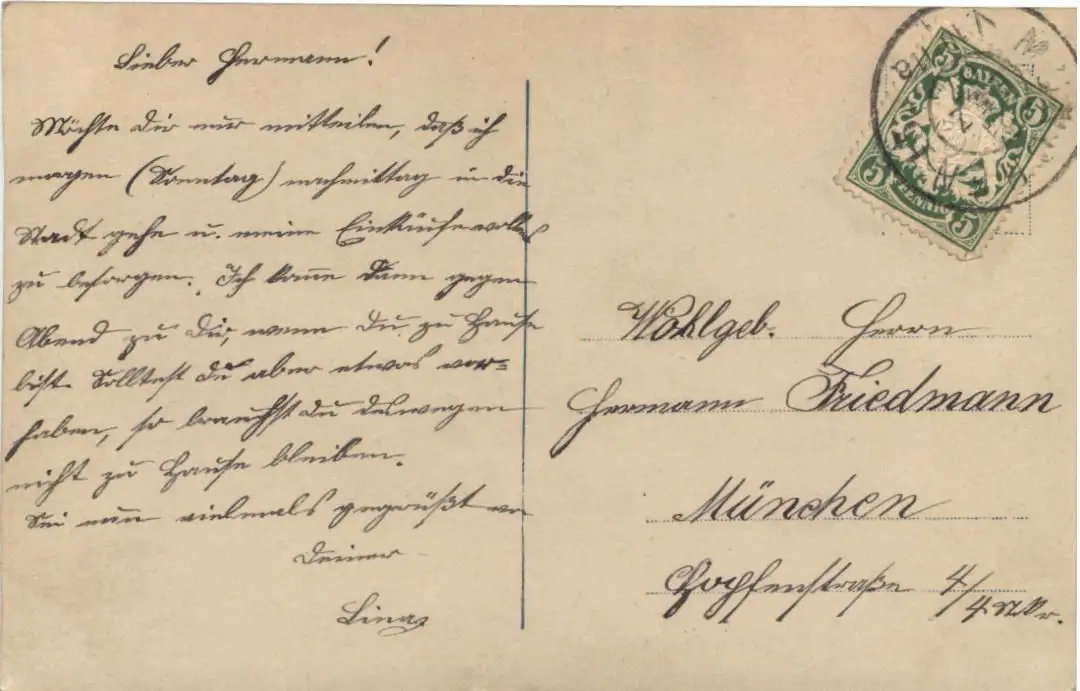 Lieber Hermann!
Möchte Dir nur mitteilen, daß ich
morgen (Sonntag) nachmittag in die
Stadt gehe u. meine Einkäufe
zu besorgen. Ich komme dann gegen
Abend zu Dir, wenn Du zu Hause
bist. Solltest Du aber etwas vor=
haben, so brauchst Du deswegen
nicht zu Hause bleiben.
Sei nun vielmals gegrüßt von
Deiner
Lina
5 BAYERN 5
5 PFENNIG 5
Wohlgeb. Herrn
Hermann Friedmann
München
Hopfenstraße 4/4